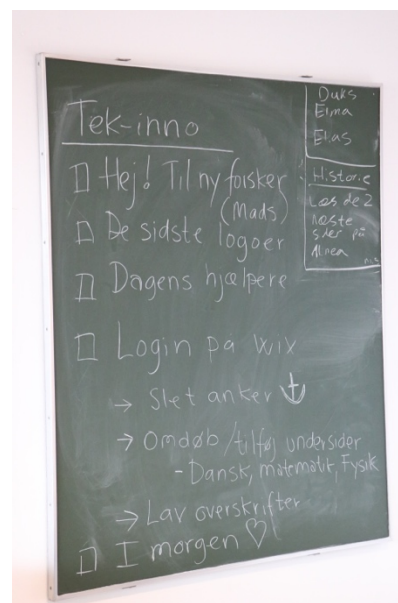 Tek-inno
Hej! Til ny forsker
(Mads)
De sidste logoer
Dagens hjælpere
Login på wix
→ Slet anker
→ Omdøb/tilføj undersider
- Dansk, matematik, Fysik
→ Lav overskrifter
I morgen ♡
Duks
Elma
Elias
Historie
Læs de 2
næste
sider på
Alinea